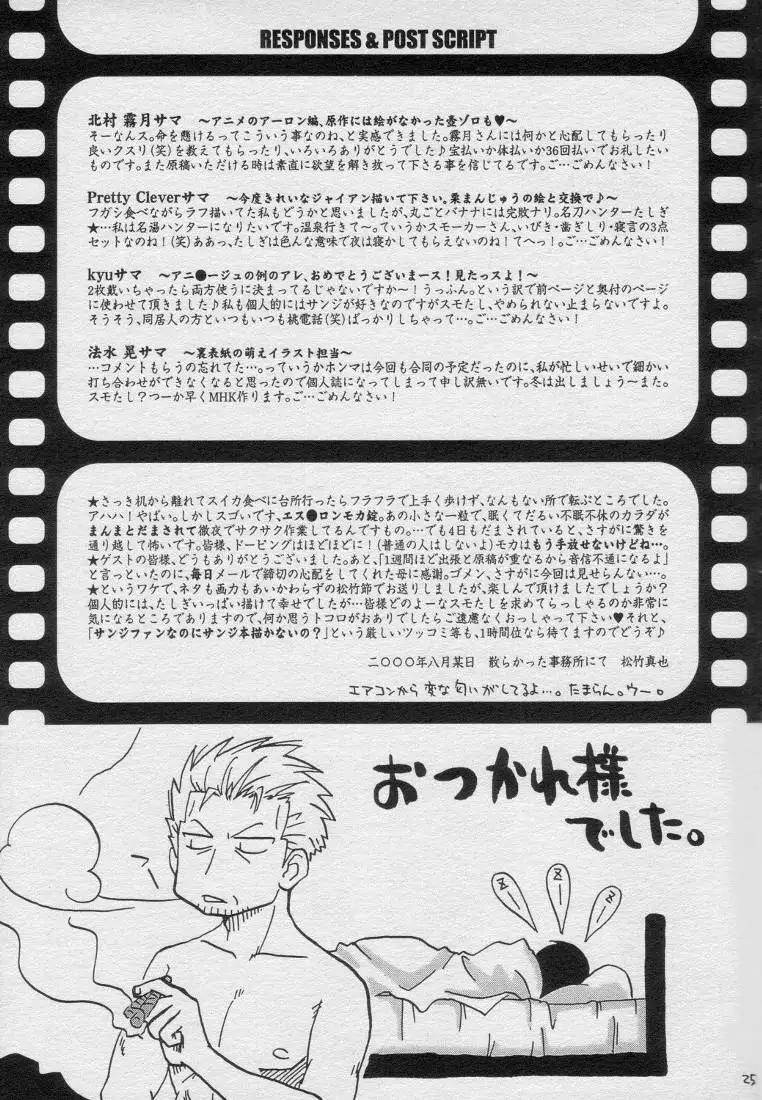 RESPONSES & POST SCRIPT
北村 霧月サマ ～アニメのアーロン編、原作には絵がなかった壺ゾロも♥～
そーなんス。命を懸けるってこういう事なのね、と実感できました。霧月さんには何かと心配してもらったり
良いクスリ(笑)を教えてもらったり、いろいろありがとうでした♪宝払いか体払いか36回払いでお礼したい
ものです。また原稿いただける時は素直に欲望を解き放って下さる事を信じてるです。ご…ごめんなさい！
Pretty Cleverサマ ～今度きれいなジャイアン描いて下さい。栗まんじゅうの絵と交換で♪～
フガシ食べながらラフ描いてた私もどうかと思いましたが、丸ごとバナナには完敗ナリ。名刀ハンターたしぎ
★…私は名湯ハンターになりたいです。温泉行きて～。ていうかスモーカーさん、いびき・歯ぎしり・寝言の3点
セットなのね！(笑)ああっ、たしぎは色んな意味で夜は寝かしてもらえないのね！てへっ！。ご…ごめんなさい！
kyuサマ ～アニ●ージュの例のアレ、おめでとうございまース！見たっスよ！～
2枚戴いちゃったら両方使うに決まってるじゃないですか～！うっふん。という訳で前ページと奥付のページ
に使わせて頂きました♪私も個人的にはサンジが好きなのですがスモたし、やめられない止まらないですよ。
そうそう、同居人の方といつもいつも桃電話(笑)ばっかりしちゃって…。ご…ごめんなさい！
法水 晃サマ ～裏表紙の萌えイラスト担当～
…コメントもらうの忘れてた…。っていうかホンマは今回も合同の予定だったのに、私が忙しいせいで細かい
打ち合わせができなくなると思ったので個人誌になってしまって申し訳無いです。冬は出しましょう～また。
スモたし？つーか早くMHK作ります。ご…ごめんなさい！
★さっき机から離れてスイカ食べに台所行ったらフラフラで上手く歩けず、なんもない所で転ぶところでした。
アハハ！やばい。しかしスゴいです、エス●ロンモカ錠。あの小さな一粒で、眠くてだるい不眠不休のカラダが
まんまとだまされて徹夜でサクサク作業してるんですもの…。でも4日もだまされていると、さすがに驚きを
通り越して怖いです。皆様、ドーピングはほどほどに！(普通の人はしないよ)モカはもう手放せないけどね…。
★ゲストの皆様、どうもありがとうございました。あと、「1週間ほど出張と原稿が重なるから音信不通になるよ」
と言っといたのに、毎日メールで締切の心配をしてくれた母に感謝。ゴメン、さすがに今回は見せらんない…。
★というワケで、ネタも画力もあいかわらずの松竹節でお送りしましたが、楽しんで頂けましたでしょうか？
個人的には、たしぎいっぱい描けて幸せでしたが…皆様どのよーなスモたしを求めてらっしゃるのか非常に
気になるところでありますので、何か思うトコロがおありでしたらご遠慮なくおっしゃって下さい♥それと、
「サンジファンなのにサンジ本描かないの？」という厳しいツッコミ等も、1時間位なら待てますのでどうぞ♪
二〇〇〇年八月某日 散らかった事務所にて 松竹真也
エアコンから変な匂いがしてるよ…。たまらん。ウー。
おつかれ様
でした。
Z Z Z
25